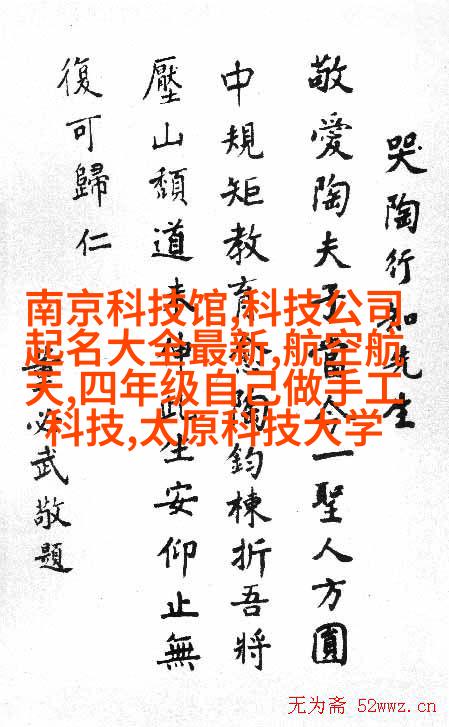 哭陶行知先生
敬愛陶夫子當今一聖人方圓
中規矩教育陶鈞棟折吾將
壓山頹道未伸此生安仰止無
復可歸仁
董必武敬題
南京科技馆,科技公司
起名大全最新,航空航
天,四年级自己做手工
科技,太原科技大学
无为斋 52wwz.cn